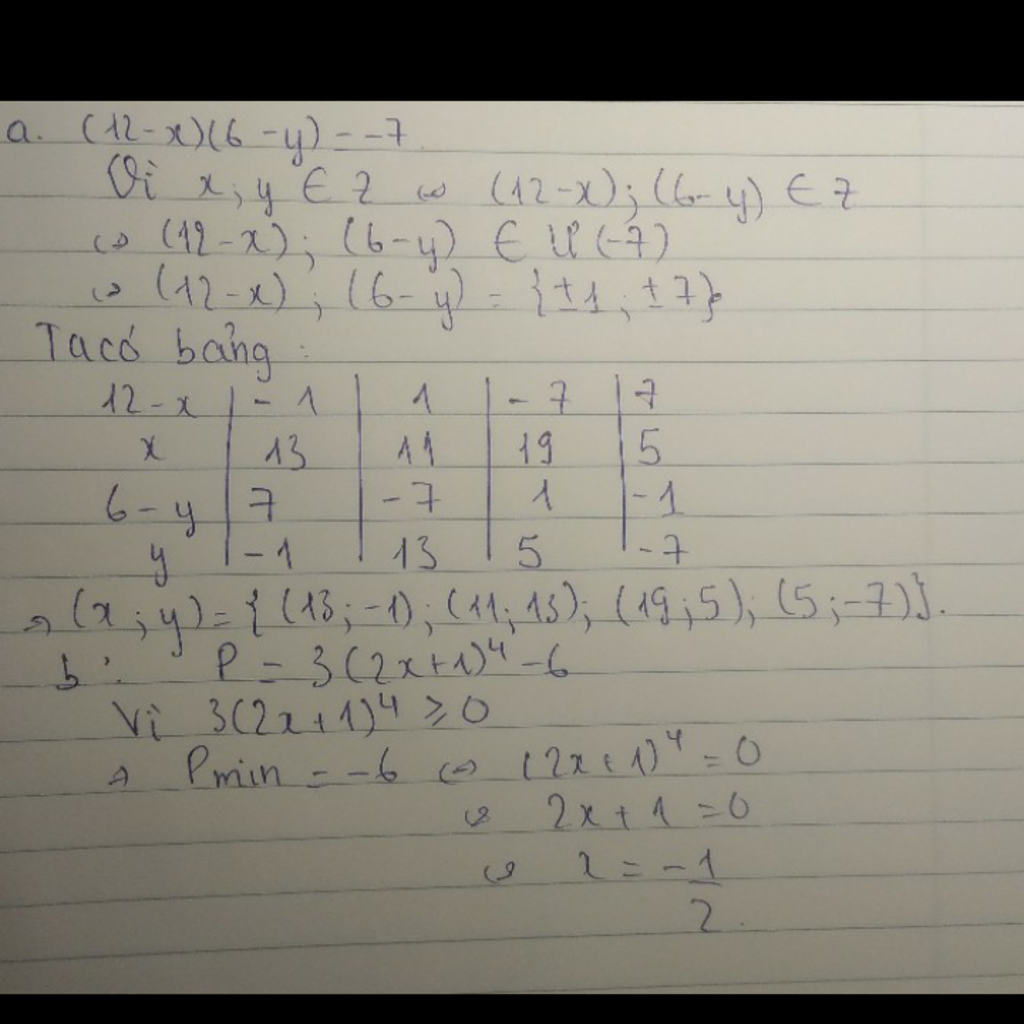 a. (12-x)(6-y) = -7
Vì x; y ∈ Z ⇔ (12-x); (6-y) ∈ Z
⇔ (12-x); (6-y) ∈ Ư(-7)
⇔ (12-x); (6-y) = {±1; ±7}
Ta có bảng:
12-x | -1 | 1 | -7 | 7
x | 13 | 11 | 19 | 5
6-y | 7 | -7 | 1 | -1
y | -1 | 13 | 5 | -7
⇒ (x; y) = {(13; -1); (11; 13); (19; 5); (5; -7)}.
b: P = 3(2x+1)⁴ - 6
Vì 3(2x+1)⁴ ≥ 0
⇒ Pmin = -6 ⇔ (2x+1)⁴ = 0
⇔ 2x + 1 = 0
⇔ x = -1/2.